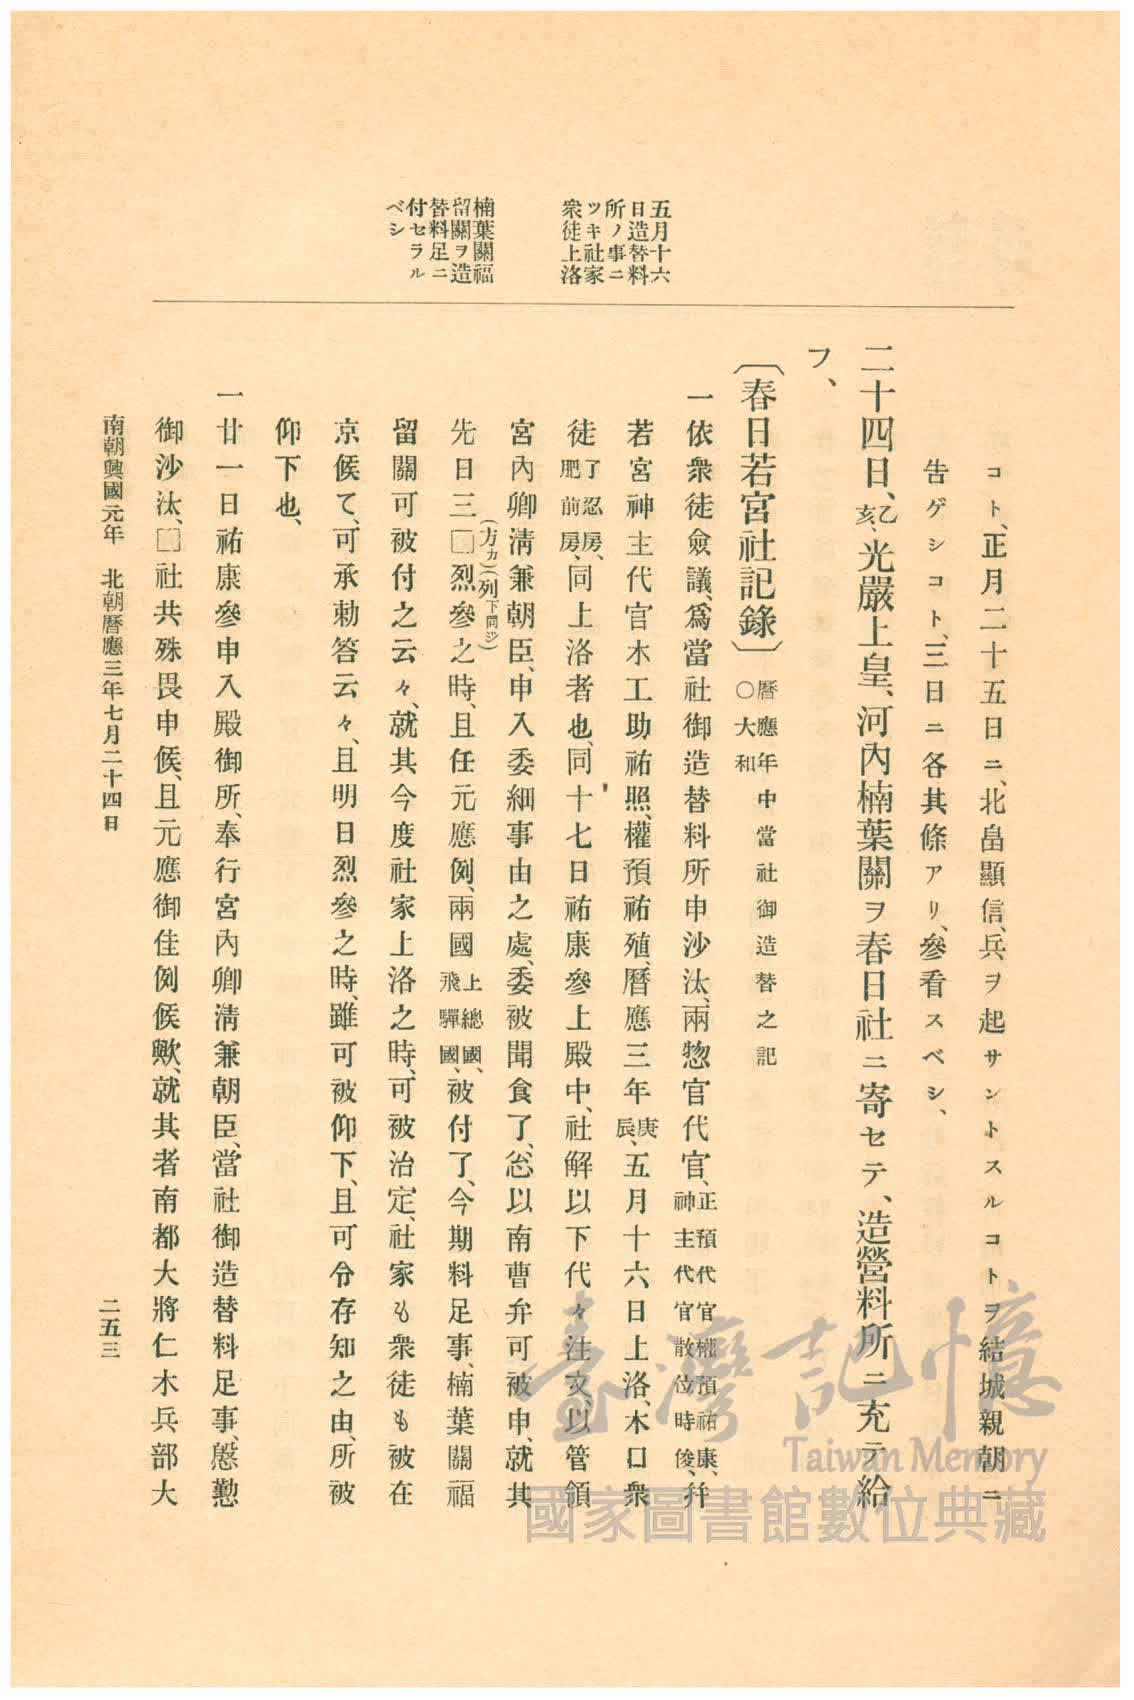 五月十六
日造替料
所ノ事ニ
ツキ社家
衆徒上洛
楠葉關福
留關ヲ造
替料足ニ
付セラル
ベシ
コト、正月二十五日ニ、北畠顯信、兵ヲ起サントスルコトヲ結城親朝ニ
告ゲシコト、三日ニ各其條アリ、參看スベシ、
二十四日、乙亥、光嚴上皇、河内楠葉關ヲ春日社ニ寄セテ、造營料所ニ充テ給
フ、
〔春日若宮社記錄〕曆應年中當社御造替之記〇大和
一依衆徒僉議、爲當社御造替料所申沙汰、兩惣官代官、正預代官權預祐康、神主代官散位時俊、幷
若宮神主代官木工助祐照、權預祐殖、曆應三年庚辰、五月十六日上洛、木口衆
徒了忍房、肥前房、同上洛者也、同十七日祐康參上殿中、社解以下代々注文、以管領
宮内卿淸兼朝臣、申入委細事由之處、委被聞食了、忩以南曹弁可被申、就其
先日三□(方カ)烈(列下同ジ)參之時、且任元應例、兩國上總國、飛驒國、被付了、今期料足事、楠葉關福
留關可被付之云々、就其今度社家上洛之時、可被治定、社家も衆徒も被在
京候て、可承勅答云々、且明日烈參之時、雖可被仰下、且可令存知之由、所被
仰下也、
一廿一日祐康參申入殿御所、奉行宮内卿淸兼朝臣、當社御造替料足事、慇懃
御沙汰、□社共殊畏申候、且元應御佳例候歟、就其者南都大將仁木兵部大
南朝興國元年 北朝曆應三年七月二十四日
二五三
臺灣記憶
Taiwan Memory
國家圖書館數位典藏